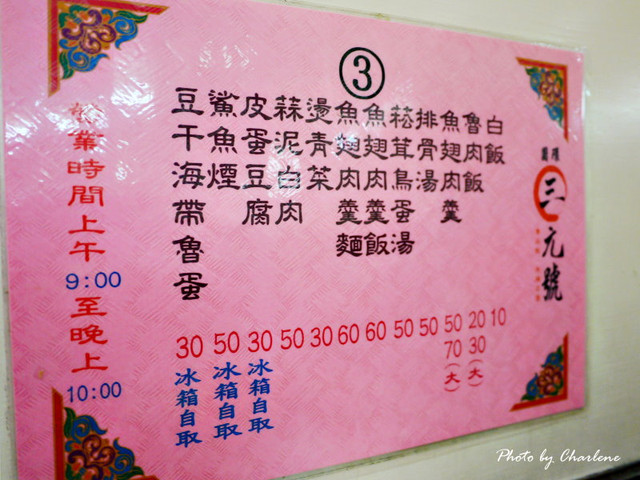 ③
圓環
三元號
白飯
10
魯肉飯
20
30(大)
魚翅肉羹
50
70(大)
排骨湯
50
菘茸鳥蛋湯
50
魚翅肉羹飯
60
魚翅肉羹麵
60
燙青菜
30
蒜泥白肉
50
皮蛋豆腐
30
冰箱自取
鯊魚煙
50
冰箱自取
豆干海帶魯蛋
30
冰箱自取
營業時間上午9:00至晚上10:00
Photo by Charlene